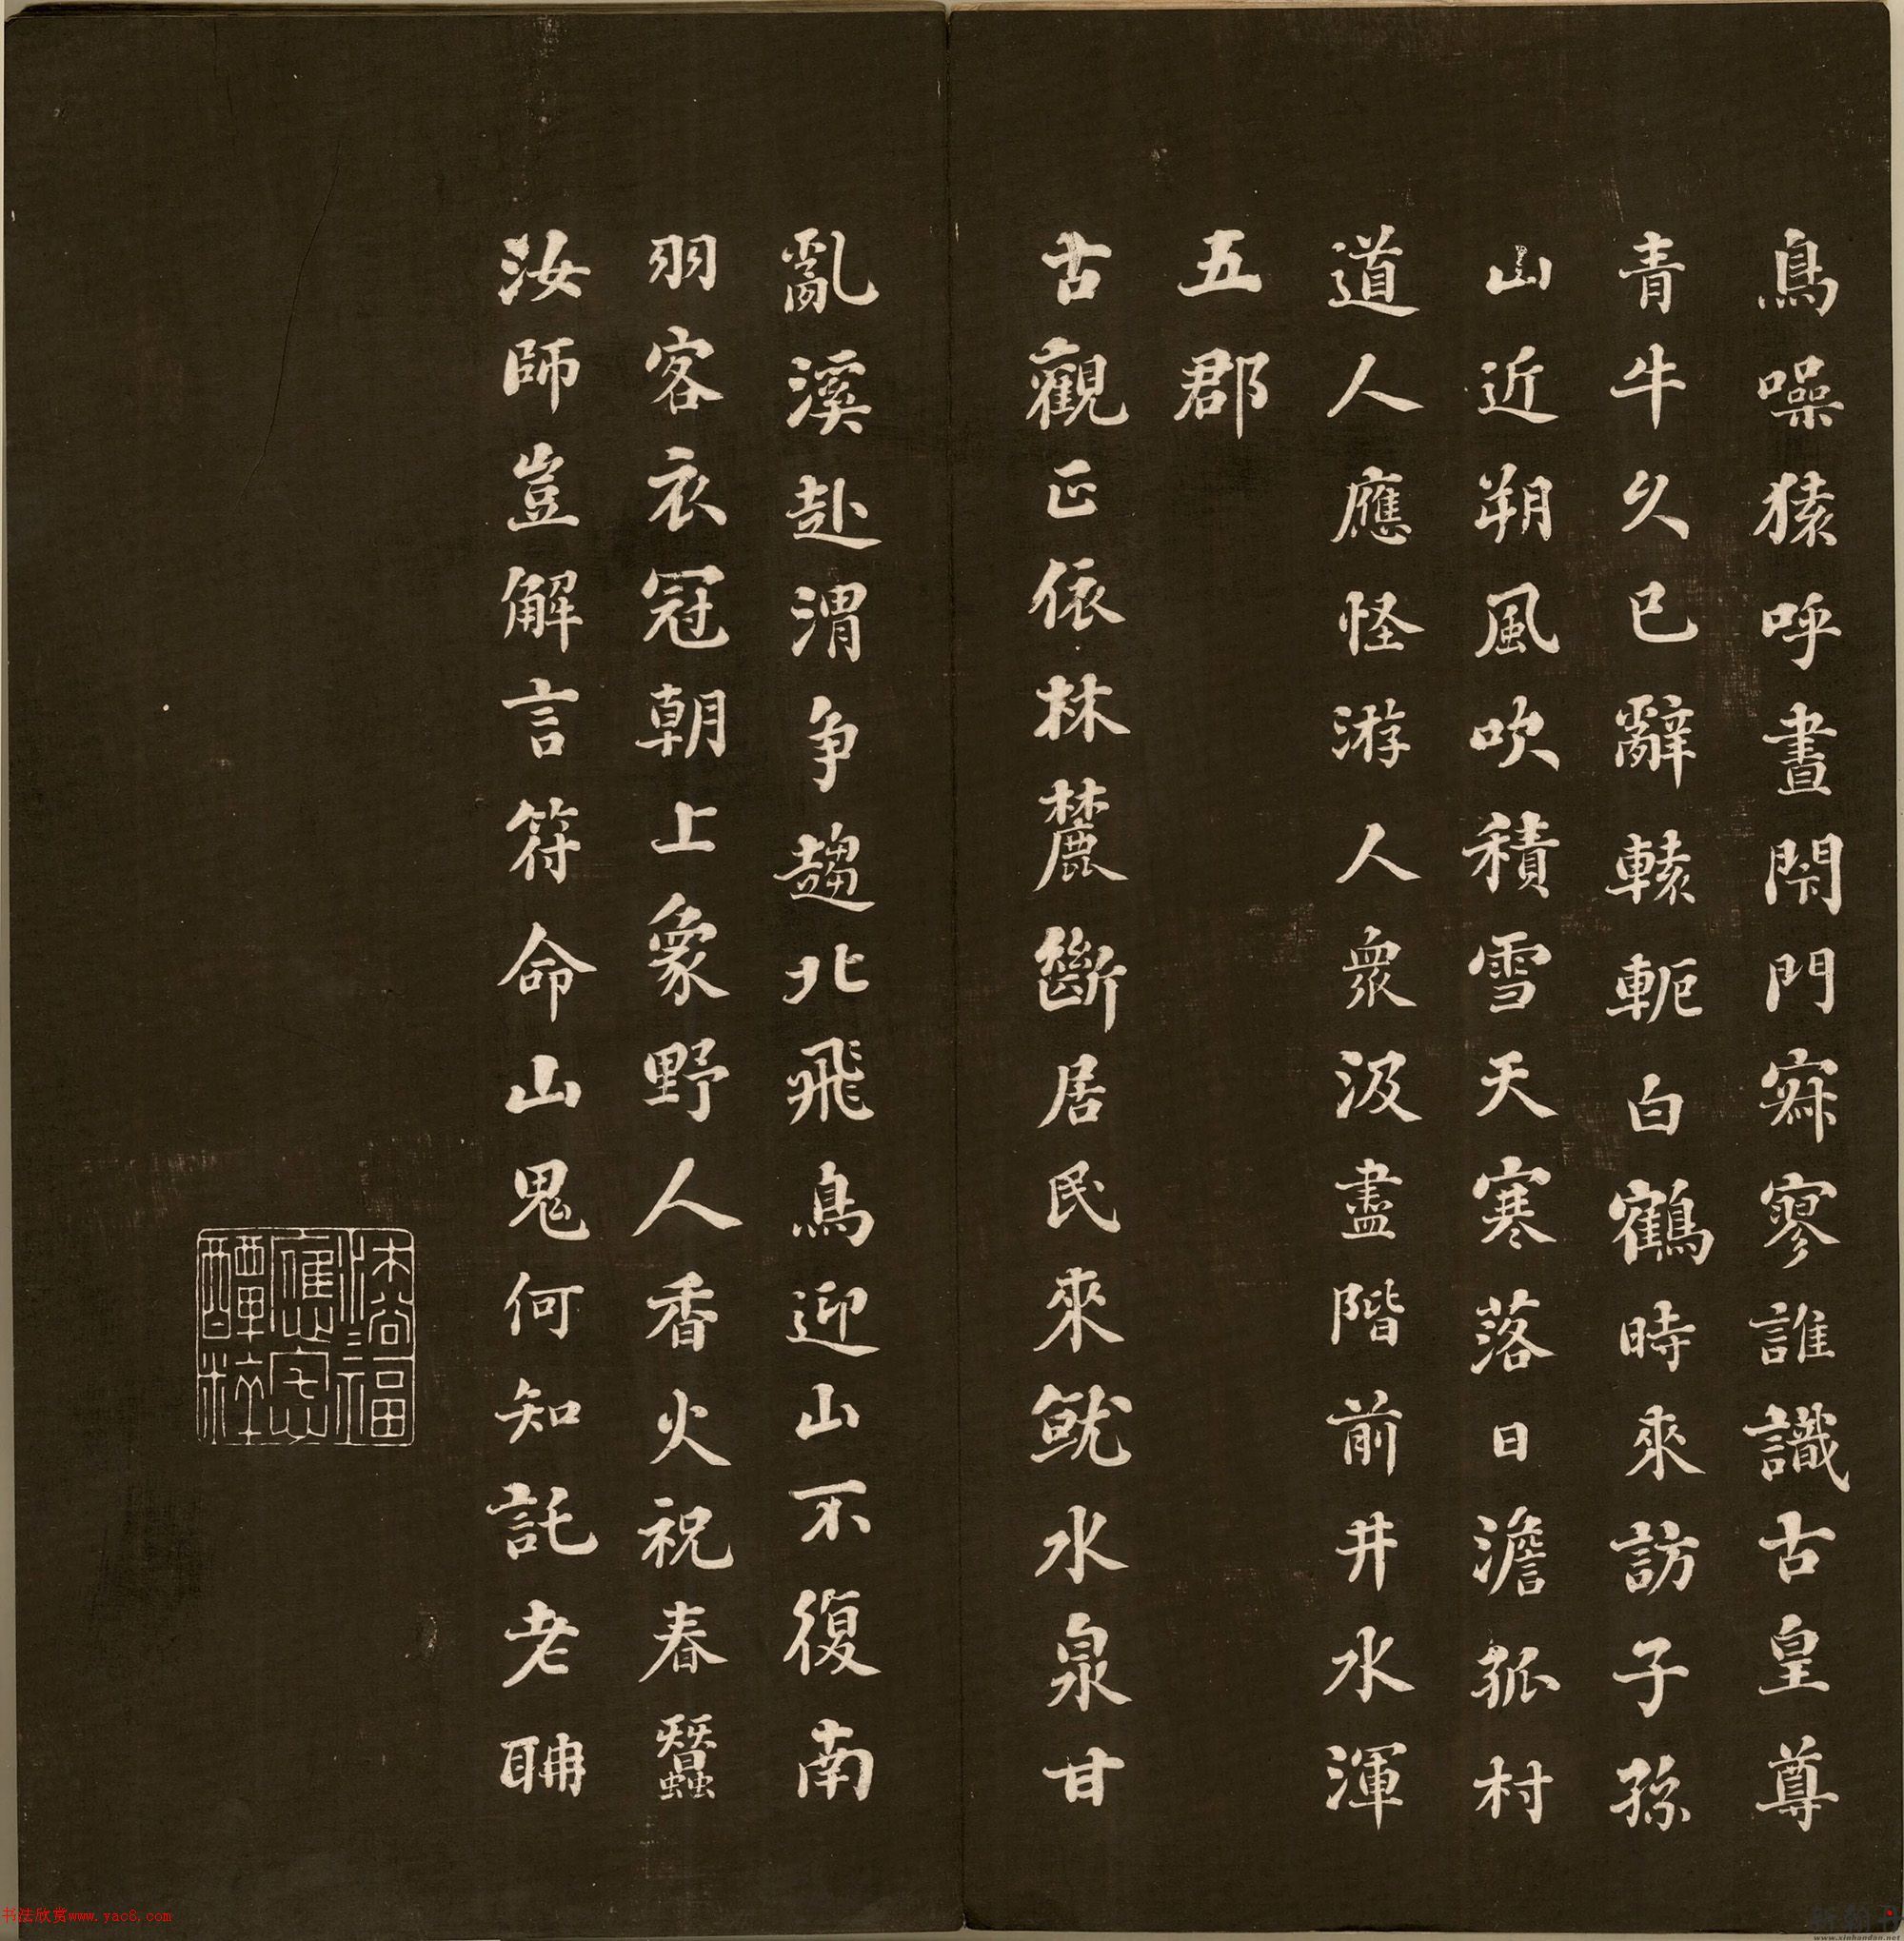 鳥噪猿呼晝閇門寂寥誰識古皇尊
青牛久已辭轅軛白鶴時來訪子孫
山近朔風吹積雪天寒落日澹孤村
道人應怪游人衆汲盡階前井水渾
五郡
古觀正依林麓斷居民來就水泉甘
亂溪赴渭争趨北飛鳥迎山不復南
羽客衣冠朝上象野人香火祝春蠶
汝師豈解言符命山鬼何知託老聃
书法欣赏www.yac8.com
www.xinhandan.net